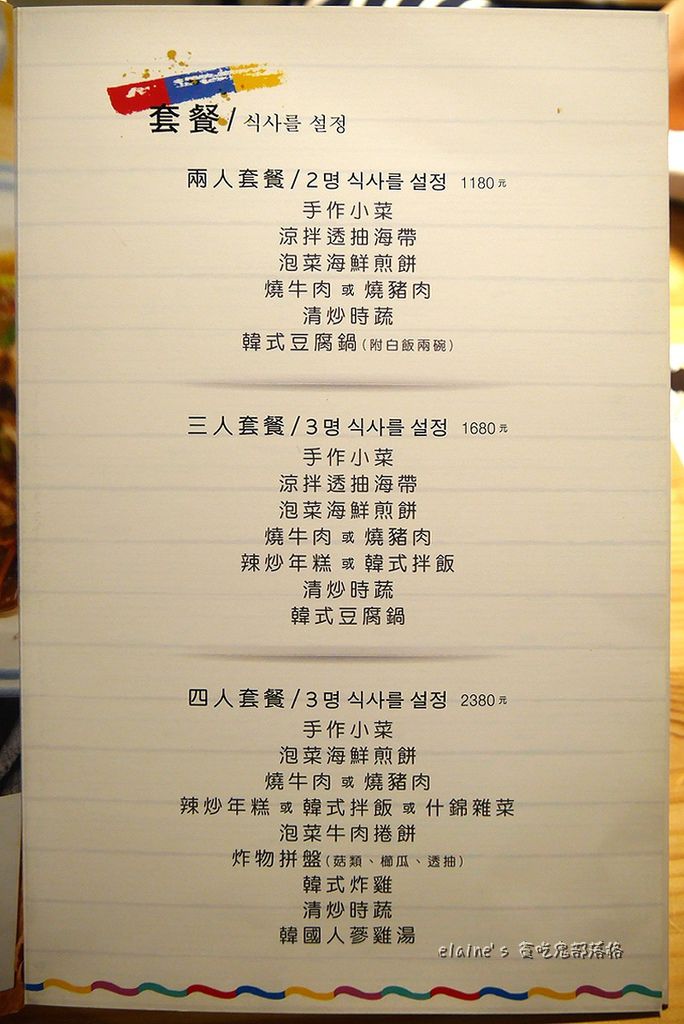 套餐/식사를 설정
兩人套餐/2명 식사를 설정 1180元
手作小菜
涼拌透抽海帶
泡菜海鮮煎餅
燒牛肉 或 燒豬肉
清炒時蔬
韓式豆腐鍋(附白飯兩碗)
三人套餐/3명 식사를 설정 1680元
手作小菜
涼拌透抽海帶
泡菜海鮮煎餅
燒牛肉 或 燒豬肉
辣炒年糕 或 韓式拌飯
清炒時蔬
韓式豆腐鍋
四人套餐/3명 식사를 설정 2380元
手作小菜
泡菜海鮮煎餅
燒牛肉 或 燒豬肉
辣炒年糕 或 韓式拌飯 或 什錦雜菜
泡菜牛肉捲餅
炸物拼盤(菇類、櫛瓜、透抽)
韓式炸雞
清炒時蔬
韓國人蔘雞湯
elaine's 貪吃鬼部落格